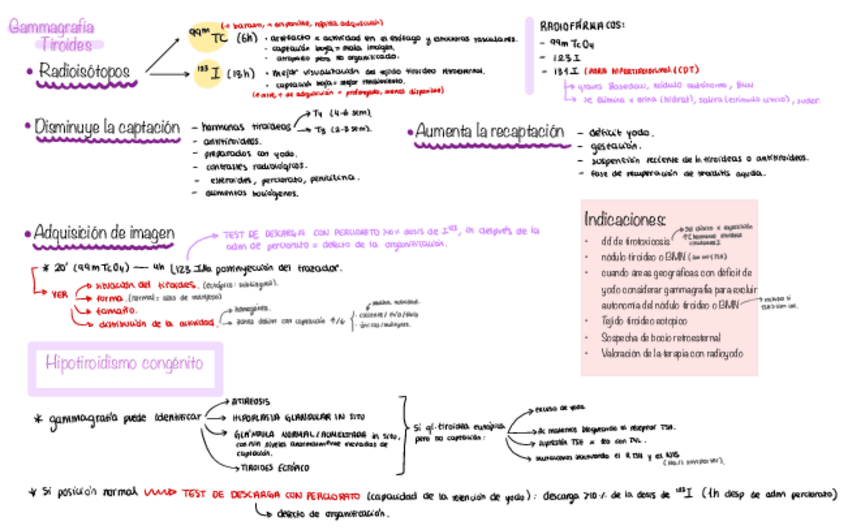 Gammagrafía
Tiroides
• Radioisótopos
(+ barato, + disponible, rápida adquisición)
99m TC (6h)
• artefacto x actividad en el esófago y estructuras vasculares.
• captación baja = mala imagen.
• atrapado pero no organificado.
123 I (13h)
• mejor visualización del tejido tiroideo retroesternal.
• captación baja = mejor rendimiento.
RADIOFÁRMACOS:
- 99m TcO4
- 123 I
- 131 I (PARA HIPERTIROIDISMO/CDT)
graves Basedow, nódulo autónomo, BMN
se elimina x orina (hidratar), saliva (estímulo cítrico), sudor.
• Disminuye la captación
- hormonas tiroideas
T4 (4-6 sem).
T3 (2-3 sem).
- antitiroideos.
- preparados con yodo.
- contrastes radiológicos.
- esteroides, perclorato, penicilina.
- alimentos bociógenos.
• Aumenta la recaptación
- déficit yodo.
- gestación.
- suspensión reciente de h. tiroideas o antitiroideos.
- fase de recuperación de tiroiditis aguda.
• Adquisición de imagen
TEST DE DESCARGA CON PERCLORATO >10% dosis de I123, 1h después de la
adm de perclorato = defecto de la organificación.
* 20' (99m TcO4) — 4h (123 I) la postinyección del trazador.
VER
situación del tiroides. (ectópico: sublingual).
forma. (normal = alas de mariposa)
tamaño.
distribución de la actividad.
homogénea.
zonas delim con captación ↑/↓
caliente/tibio/frío
único/múltiples.
Indicaciones:
• dd de tirotoxicosis
• nódulo tiroideo o BMN
• cuando áreas geográficas con déficit de
yodo considerar gammagrafía para excluir
autonomía del nódulo tiroideo o BMN
• Tejido tiroideo ectópico
• Sospecha de bocio retroesternal
• Valoración de la terapia con radioyodo
Hipotiroidismo congénito
* gammagrafía puede identificar
ATIREOSIS
HIPOPLASIA GLANDULAR IN SITU
GLÁNDULA NORMAL/AUMENTADA in situ,
con/sin niveles anormalmente elevados de
captación.
TIROIDES ECTÓPICO
Si gl. tiroidea eutópica
pero no captación:
exceso de yodo.
Ac maternos bloqueando el receptor TSH.
supresión TSH x tto con
mutaciones inactivando el R TSH y el NIS
* Si posición normal → TEST DE DESCARGA CON PERCLORATO (capacidad de la retención de yodo): descarga >10% de la dosis de 123 I (1h desp de adm perclorato)
defecto de organificación.